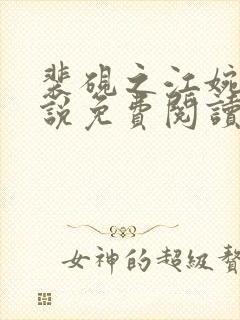 裴硯之江婉
說免費閱讀
女神的超級贅